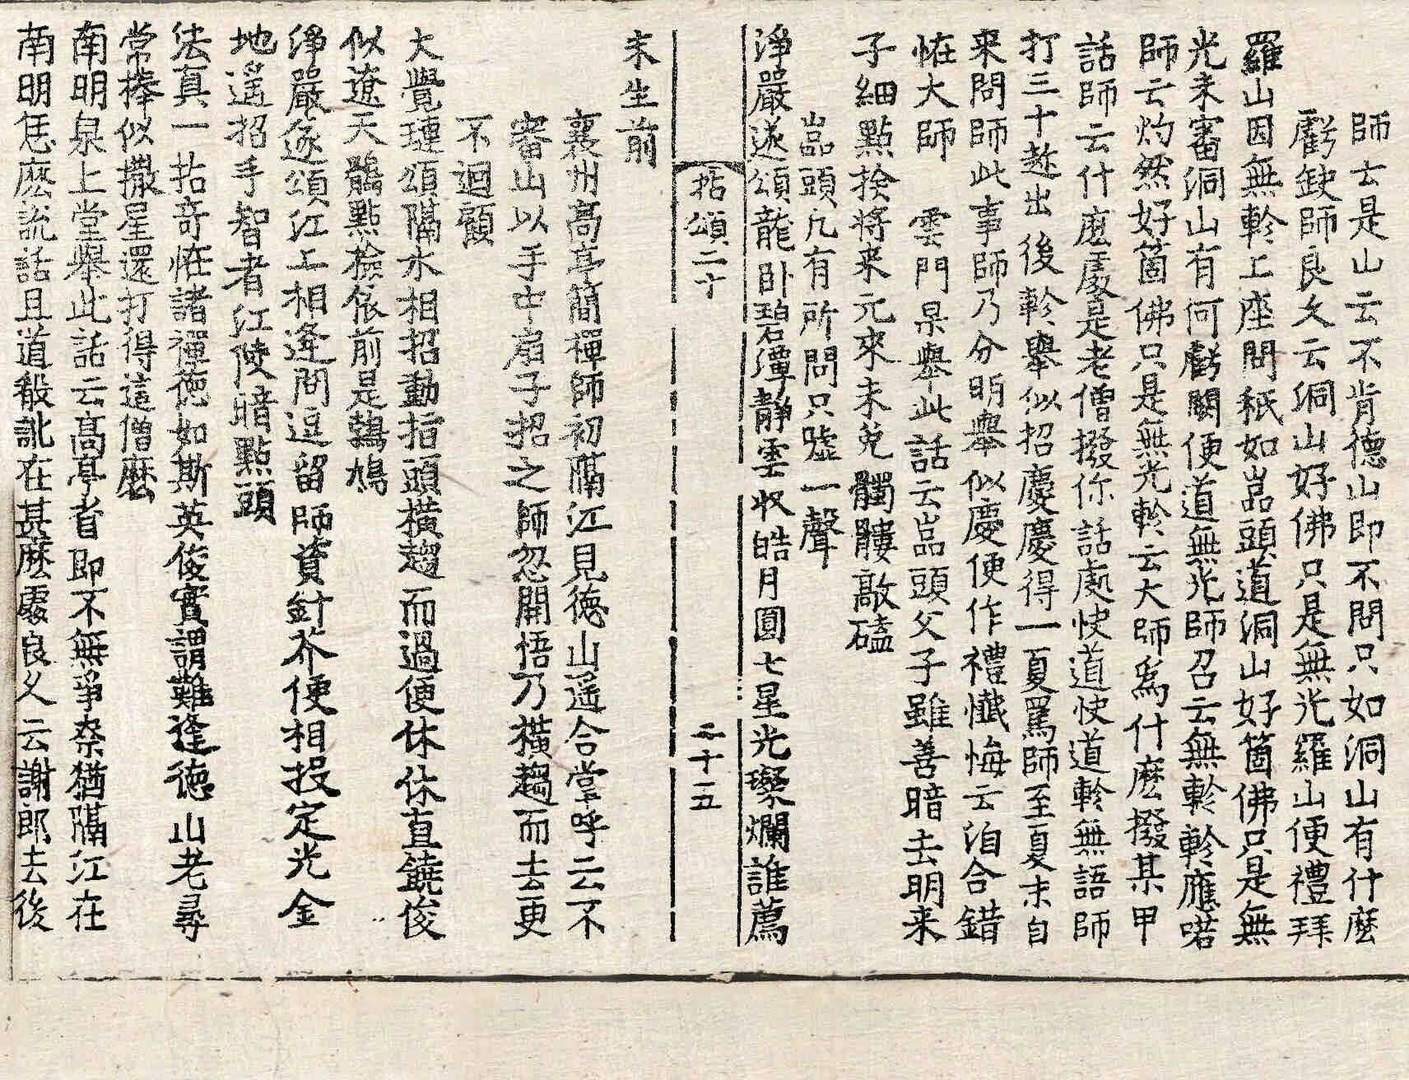 師云是山云不肯德山即不問只如洞山有什麽
虧缺師良久云洞山好佛只是無光羅山便禮拜
羅山因無軫上座問秖如嵓頭道洞山好箇佛只是無
光未審洞山有何虧闕便道無光師召云無軫軫應喏
師云灼然好箇佛只是無光軫云大師爲什麽撥某甲
話師云什麽處是老僧撥你話處快道快道軫無語師
打三十趂出後軫舉似招慶慶得一夏罵師至夏末自
來問師此事師乃分明舉似慶便作禮懺悔云洎合錯
恠大師　雲門杲舉此話云嵓頭父子雖善暗去明来
子細點撿將来元來未免髑髏敲磕
嵓頭凡有所問只嘘一聲
淨嚴遂頌龍卧碧潭静雲收皓月圓七星光璨爛誰薦
拈頌二十　二十五
未生前
襄州高亭簡禪師初隔江見德山遥合掌呼云不
審山以手中扇子招之師忽開悟乃横趨而去更
不迴顧
大覺璉頌隔水相招動指頭横趨而過便休休直饒俊
似遼天鶻點檢依前是鵓鳩
淨嚴遂頌江上相逢問逗留師資針芥便相投定光金
地遥招手智者江陵暗點頭
法真一拈奇恠諸禪德如斯英俊實謂難逢德山老尋
常棒似撒星還打得這僧麽
南明泉上堂舉此話云高亭者即不無爭奈猶隔江在
南明恁麽說話且道殽訛在甚麽處良久云謝郎去後